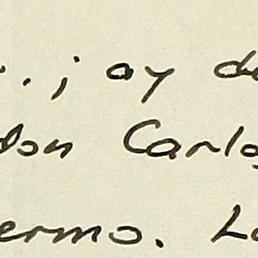 . ; ay de
don Carlo
ermo. Lo